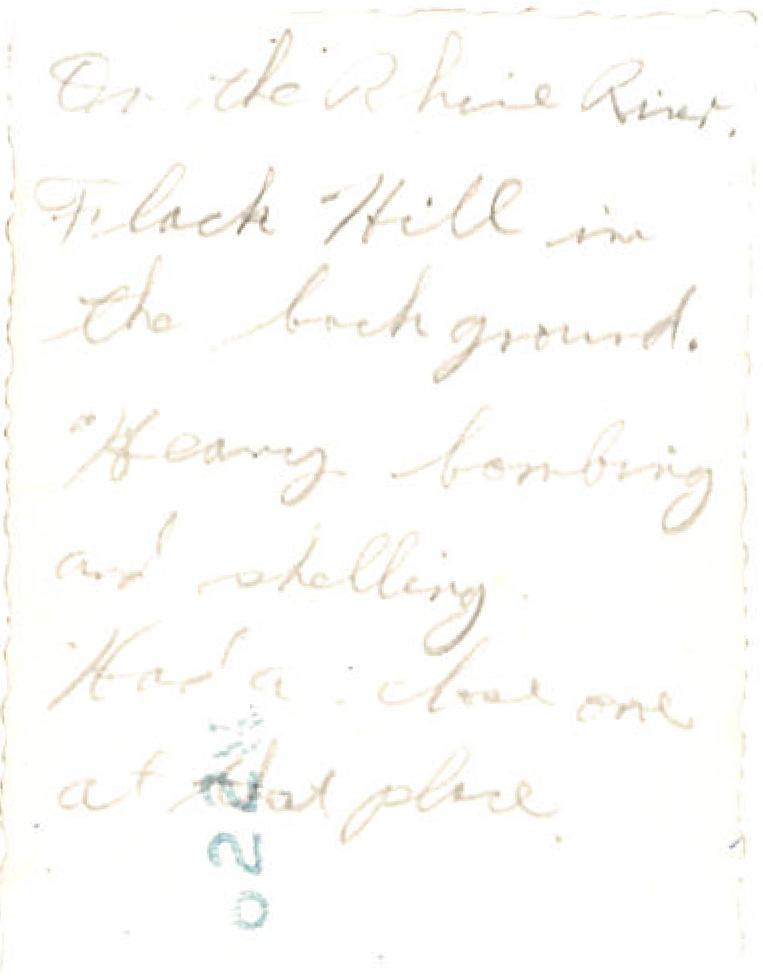 On the Rhine River.
Flack Hill in
the background.
Heavy bombing
and shelling.
Had a close one
at that place.
022